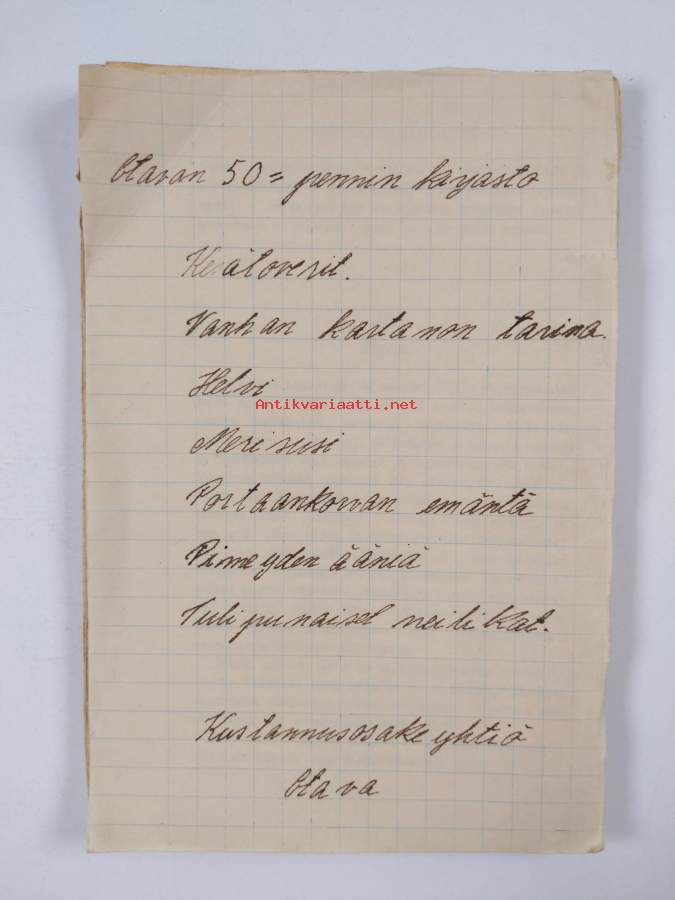 Otavan 50= pennin kirjasto
Kesätoverit.
Vanhan kartanon tarina.
Helvi
Antikvariaatti.net
Merisusi
Portaankorvan emäntä
Pimeyden ääniä
Tulipunaiset neilikat.
Kustannusosakeyhtiö
Otava